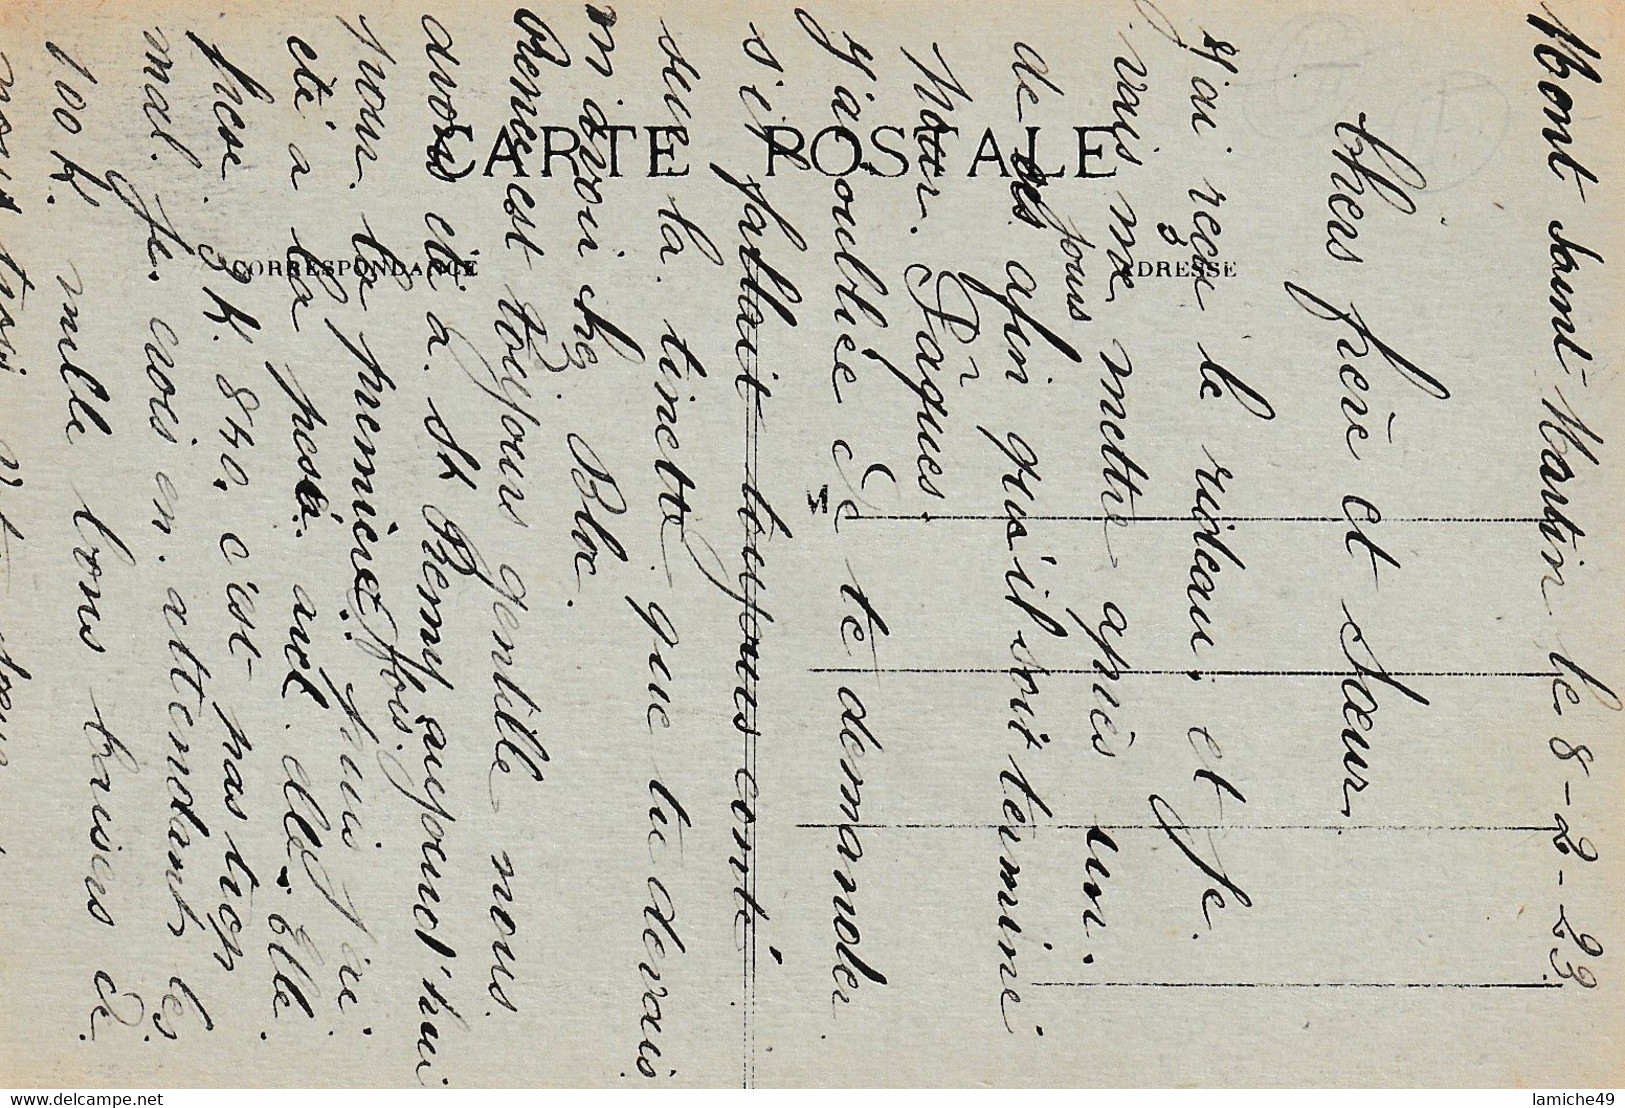 Mont Saint-Martin le 8-2-23
Chers frère et sœur.
J'ai reçu le rideau, et je
vais me mettre après un.
de ses jours afin qu'il soit terminé
pour Pâques.
J'ai oubliée de te demander
s'il fallait toujours compté
sur la tinette que tu devais
m'avoir chez Bloc.
Renée est toujours gentille nous
avons été a St Remy aujourd'hui
pour la première fois. puis j'ai
été a la pesée avec elle. Elle
pese 3 K. 840. c'est pas trop
mal. Je crois en attendant les
100 K. mille bons baisers à
CARTE POSTALE
CORRESPONDANCE
ADRESSE
M
delcampe.net
lamiche49